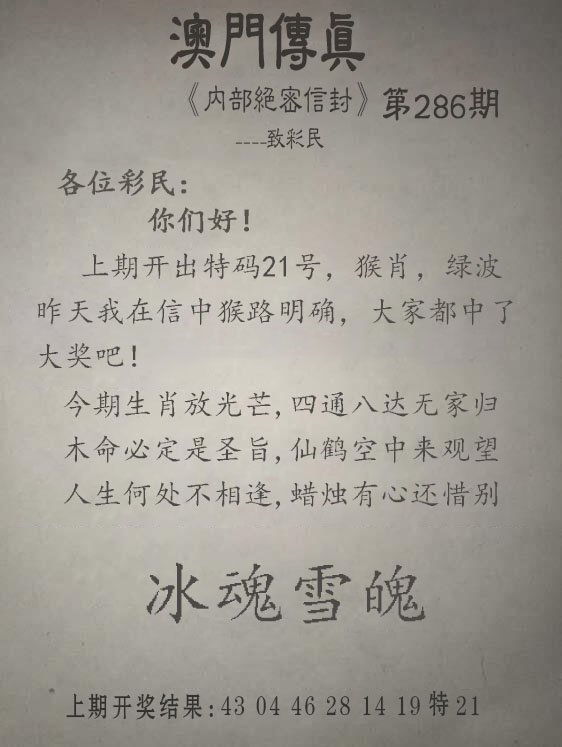 澳門傳真
《内部絕密信封》第286期
----致彩民
各位彩民:
你们好!
上期开出特码21号, 猴肖, 绿波
昨天我在信中猴路明确, 大家都中了
大奖吧!
今期生肖放光芒,四通八达无家归
木命必定是圣旨,仙鹤空中来观望
人生何处不相逢,蜡烛有心还惜别
冰魂雪魄
上期开奖结果:43 04 46 28 14 19 特 21